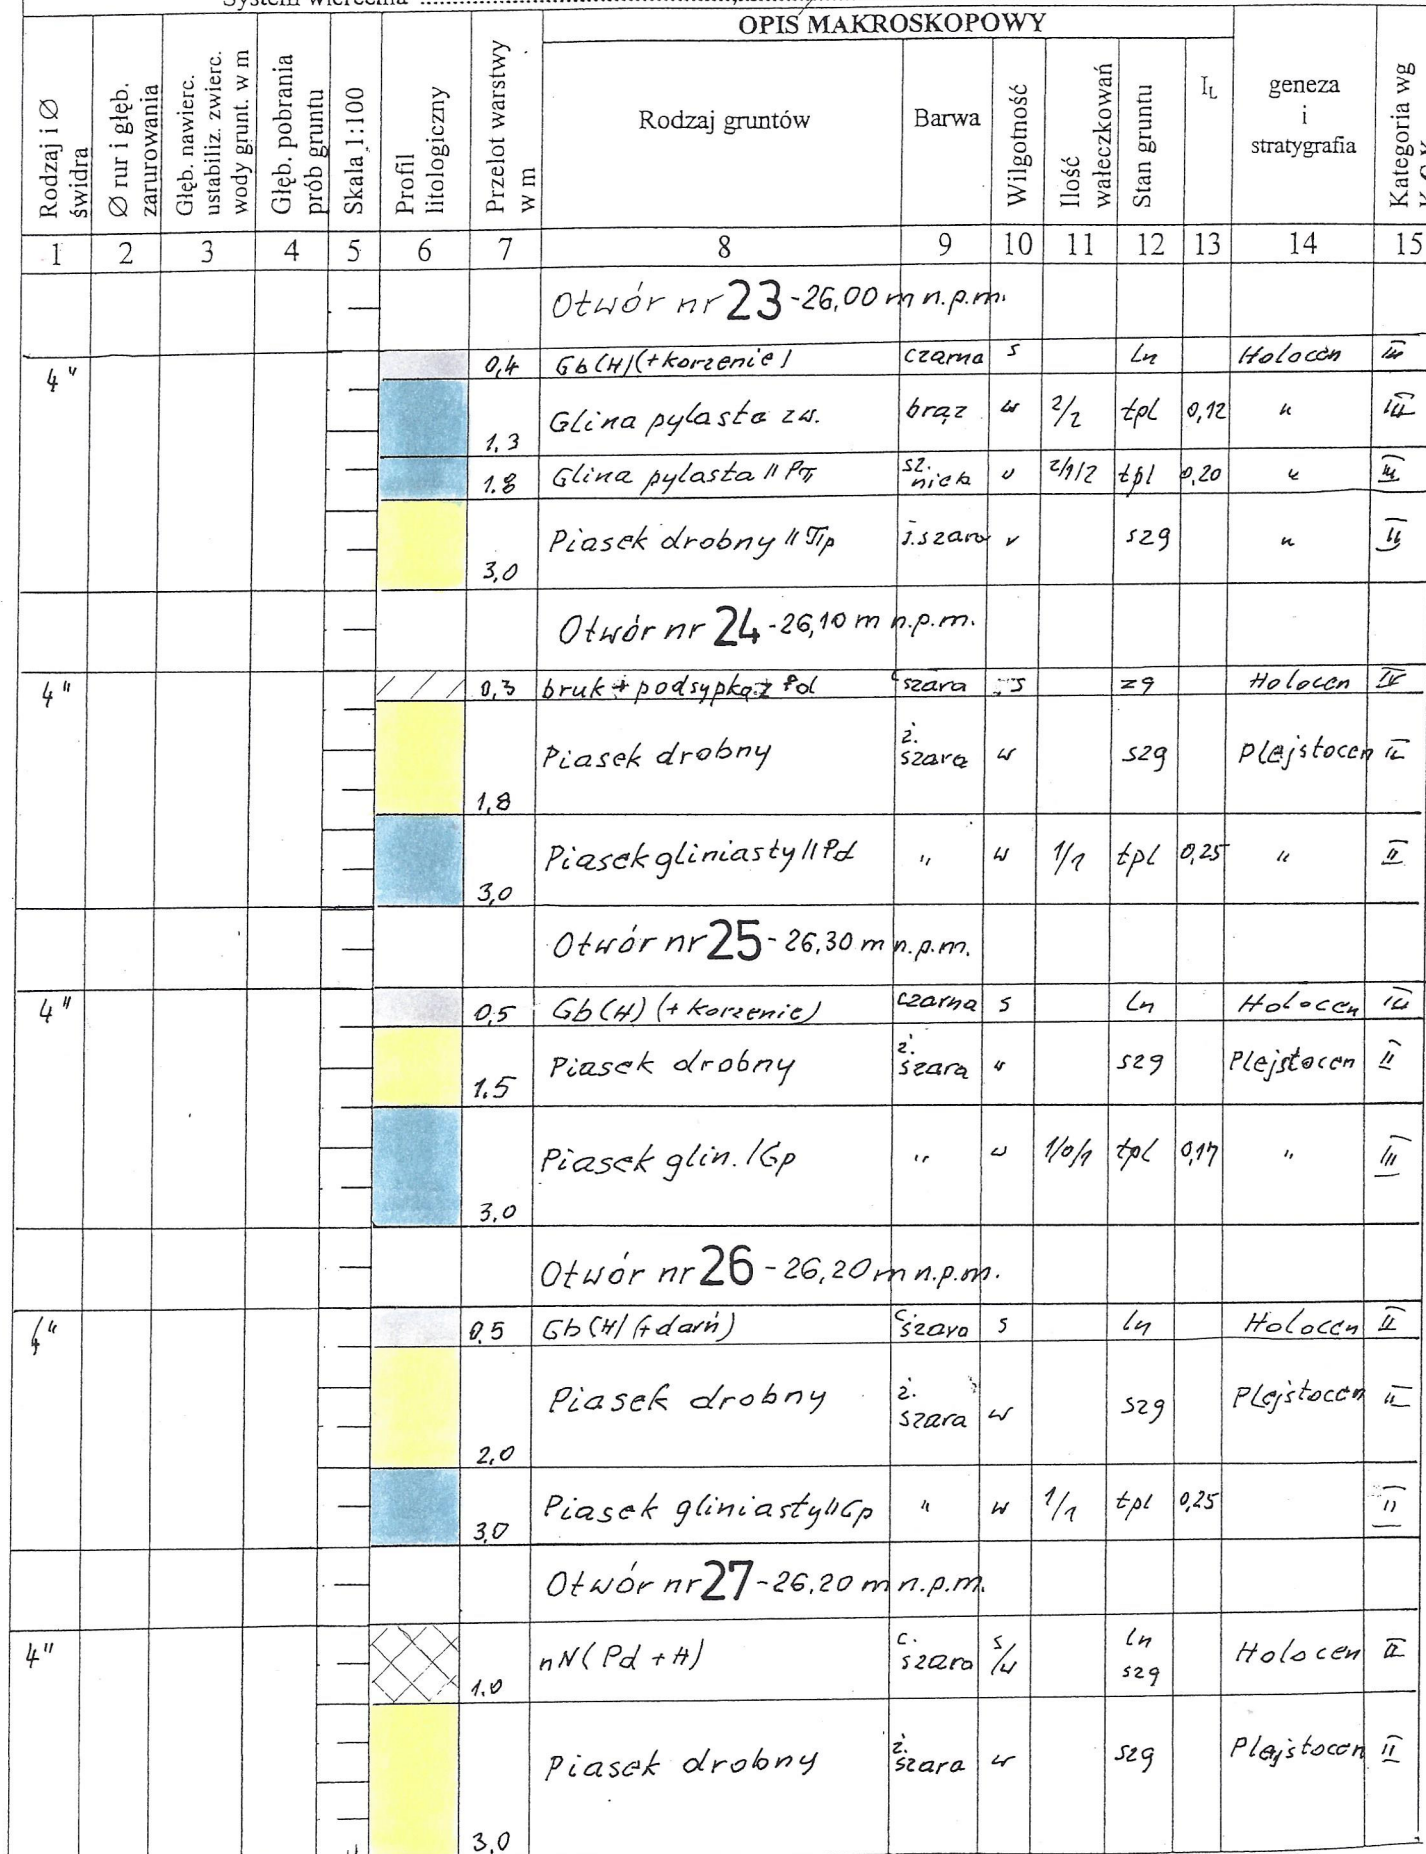 System wiercenia
OPIS MAKROSKOPOWY
Rodzaj i Ø świdra
Ø rur i głęb. zarurowania
Głęb. nawierc. ustabiliz. zwierc. wody grunt. w m
Głęb. pobrania prób gruntu
Skala 1:100
Profil litologiczny
Przelot warstwy w m
Rodzaj gruntów
Barwa
Wilgotność
Ilość wałeczkowań
Stan gruntu
I_L
geneza i stratygrafia
Kategoria wg
1 2 3 4 5 6 7 8 9 10 11 12 13 14 15
Otwór nr 23 - 26,00 m n.p.m.
4" 0,4 Gb(H) (+korzenie) czarna s ln Holocen III
1,3 Glina pylasta zw. brąz w 2/2 tpl 0,12 " III
1.8 Glina pylasta // Pπ sz. nieb 2/1/2 tpl 0,20 " III
3,0 Piasek drobny // πp j.szara szg " II
Otwór nr 24 - 26,10 m n.p.m.
4" 0,3 bruk + podsypka z Pd szara s zg Holocen IV
1,8 Piasek drobny ż. szara w szg Plejstocen II
3,0 Piasek gliniasty // Pd " w 1/1 tpl 0,25 " II
Otwór nr 25 - 26,30 m n.p.m.
4" 0,5 Gb(H) (+korzenie) czarna s ln Holocen III
1.5 Piasek drobny ż. szara w szg Plejstocen II
3,0 Piasek glin. /Gp " w 1/0/1 tpl 0,17 " III
Otwór nr 26 - 26,20 m n.p.m.
4" 0,5 Gb(H) (+darń) c. szara s ln Holocen II
2,0 Piasek drobny ż. szara w szg Plejstocen II
3,0 Piasek gliniasty // Gp " w 1/1 tpl 0,25 II
Otwór nr 27 - 26,20 m n.p.m.
4" 1.0 nN (Pd + H) c. szara s/w ln szg Holocen II
3,0 Piasek drobny ż. szara w szg Plejstocen II